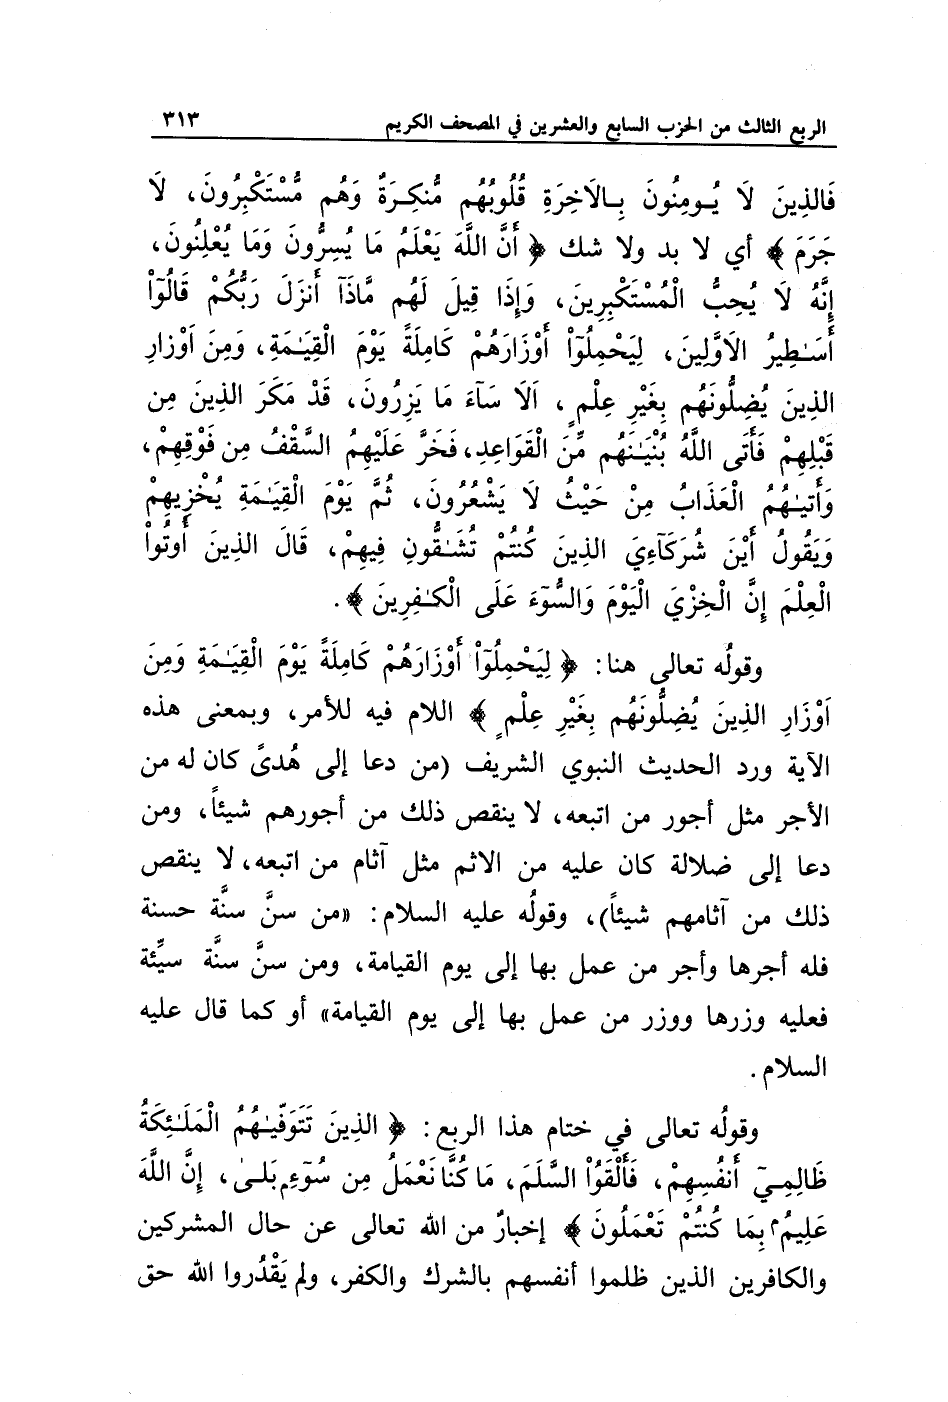 الربع الثالث من الحزب السابع والعشرين في المصحف الكريم ٣١٣
فَالذِينَ لَا يُومِنُونَ بِالَاخِرَةِ قُلُوبُهُم مُّنكِرَةٌ وَهُم مُّسْتَكْبِرُونَ، لَا
جَرَمَ ﴾ أي لا بد ولا شك ﴿ أَنَّ اللَّهَ يَعْلَمُ مَا يُسِرُّونَ وَمَا يُعْلِنُونَ،
إِنَّهُ لَا يُحِبُّ الْمُسْتَكْبِرِينَ، وَإِذَا قِيلَ لَهُم مَّاذَآ أَنزَلَ رَبُّكُمْ قَالُوٓاْ
أَسَـٰطِيرُ الَاوَّلِينَ، لِيَحْمِلُوٓاْ أَوْزَارَهُمْ كَامِلَةً يَوْمَ الْقِيَـٰمَةِ، وَمِنَ اَوْزَارِ
الذِينَ يُضِلُّونَهُم بِغَيْرِ عِلْمٍ، اَلَا سَآءَ مَا يَزِرُونَ، قَدْ مَكَرَ الذِينَ مِن
قَبْلِهِمْ فَأَتَى اللَّهُ بُنْيَـٰنَهُم مِّنَ الْقَوَاعِدِ، فَخَرَّ عَلَيْهِمُ السَّقْفُ مِن فَوْقِهِمْ،
وَأَتَيـٰهُمُ الْعَذَابُ مِنْ حَيْثُ لَا يَشْعُرُونَ، ثُمَّ يَوْمَ الْقِيَـٰمَةِ يُخْزِيهِمْ
وَيَقُولُ أَيْنَ شُرَكَآءِيَ الذِينَ كُنتُمْ تُشَـٰقُّونِ فِيهِمْ، قَالَ الذِينَ أُوتُواْ
الْعِلْمَ إِنَّ الْخِزْيَ الْيَوْمَ وَالسُّوٓءَ عَلَى الْكَـٰفِرِينَ ﴾.
وقولُه تعالى هنا: ﴿ لِيَحْمِلُوٓاْ أَوْزَارَهُمْ كَامِلَةً يَوْمَ الْقِيَـٰمَةِ وَمِنَ
اَوْزَارِ الذِينَ يُضِلُّونَهُم بِغَيْرِ عِلْمٍ ﴾ اللام فيه للأمر، وبمعنى هذه
الآية ورد الحديث النبوي الشريف (من دعا إلى هُدىً كان له من
الأجر مثل أجور من اتبعه، لا ينقص ذلك من أجورهم شيئاً، ومن
دعا إلى ضلالة كان عليه من الاثم مثل آثام من اتبعه، لا ينقص
ذلك من آثامهم شيئاً)، وقولُه عليه السلام: «من سنَّ سنَّة حسنة
فله أجرها وأجر من عمل بها إلى يوم القيامة، ومن سنَّ سنَّة سيِّئة
فعليه وزرها ووزر من عمل بها إلى يوم القيامة» أو كما قال عليه
السلام.
وقولُه تعالى في ختام هذا الربع: ﴿ الذِينَ تَتَوَفَّيـٰهُمُ الْمَلَـٰئِكَةُ
ظَالِمِيٓ أَنفُسِهِمْ، فَأَلْقَوُاْ السَّلَمَ، مَا كُنَّا نَعْمَلُ مِن سُوٓءٍ بَلـىٰ، إِنَّ اللَّهَ
عَلِيمٌ بِمَا كُنتُمْ تَعْمَلُونَ ﴾ إخبارٌ من الله تعالى عن حال المشركين
والكافرين الذين ظلموا أنفسهم بالشرك والكفر، ولم يَقْدُروا الله حق